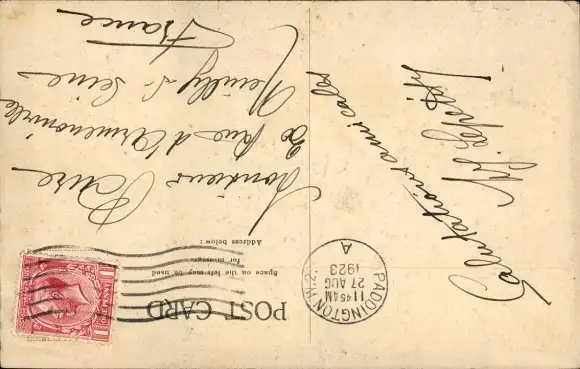 POST CARD
Space on the left may be used
for messages.
Address below:
PADDINGTON. W.2.
11 45 AM
27 AUG
1923
A
ONE PENNY
Salutations amicales
Monsieur Paure
20 Rue d'Armenonville
Neuilly s/ Seine
France